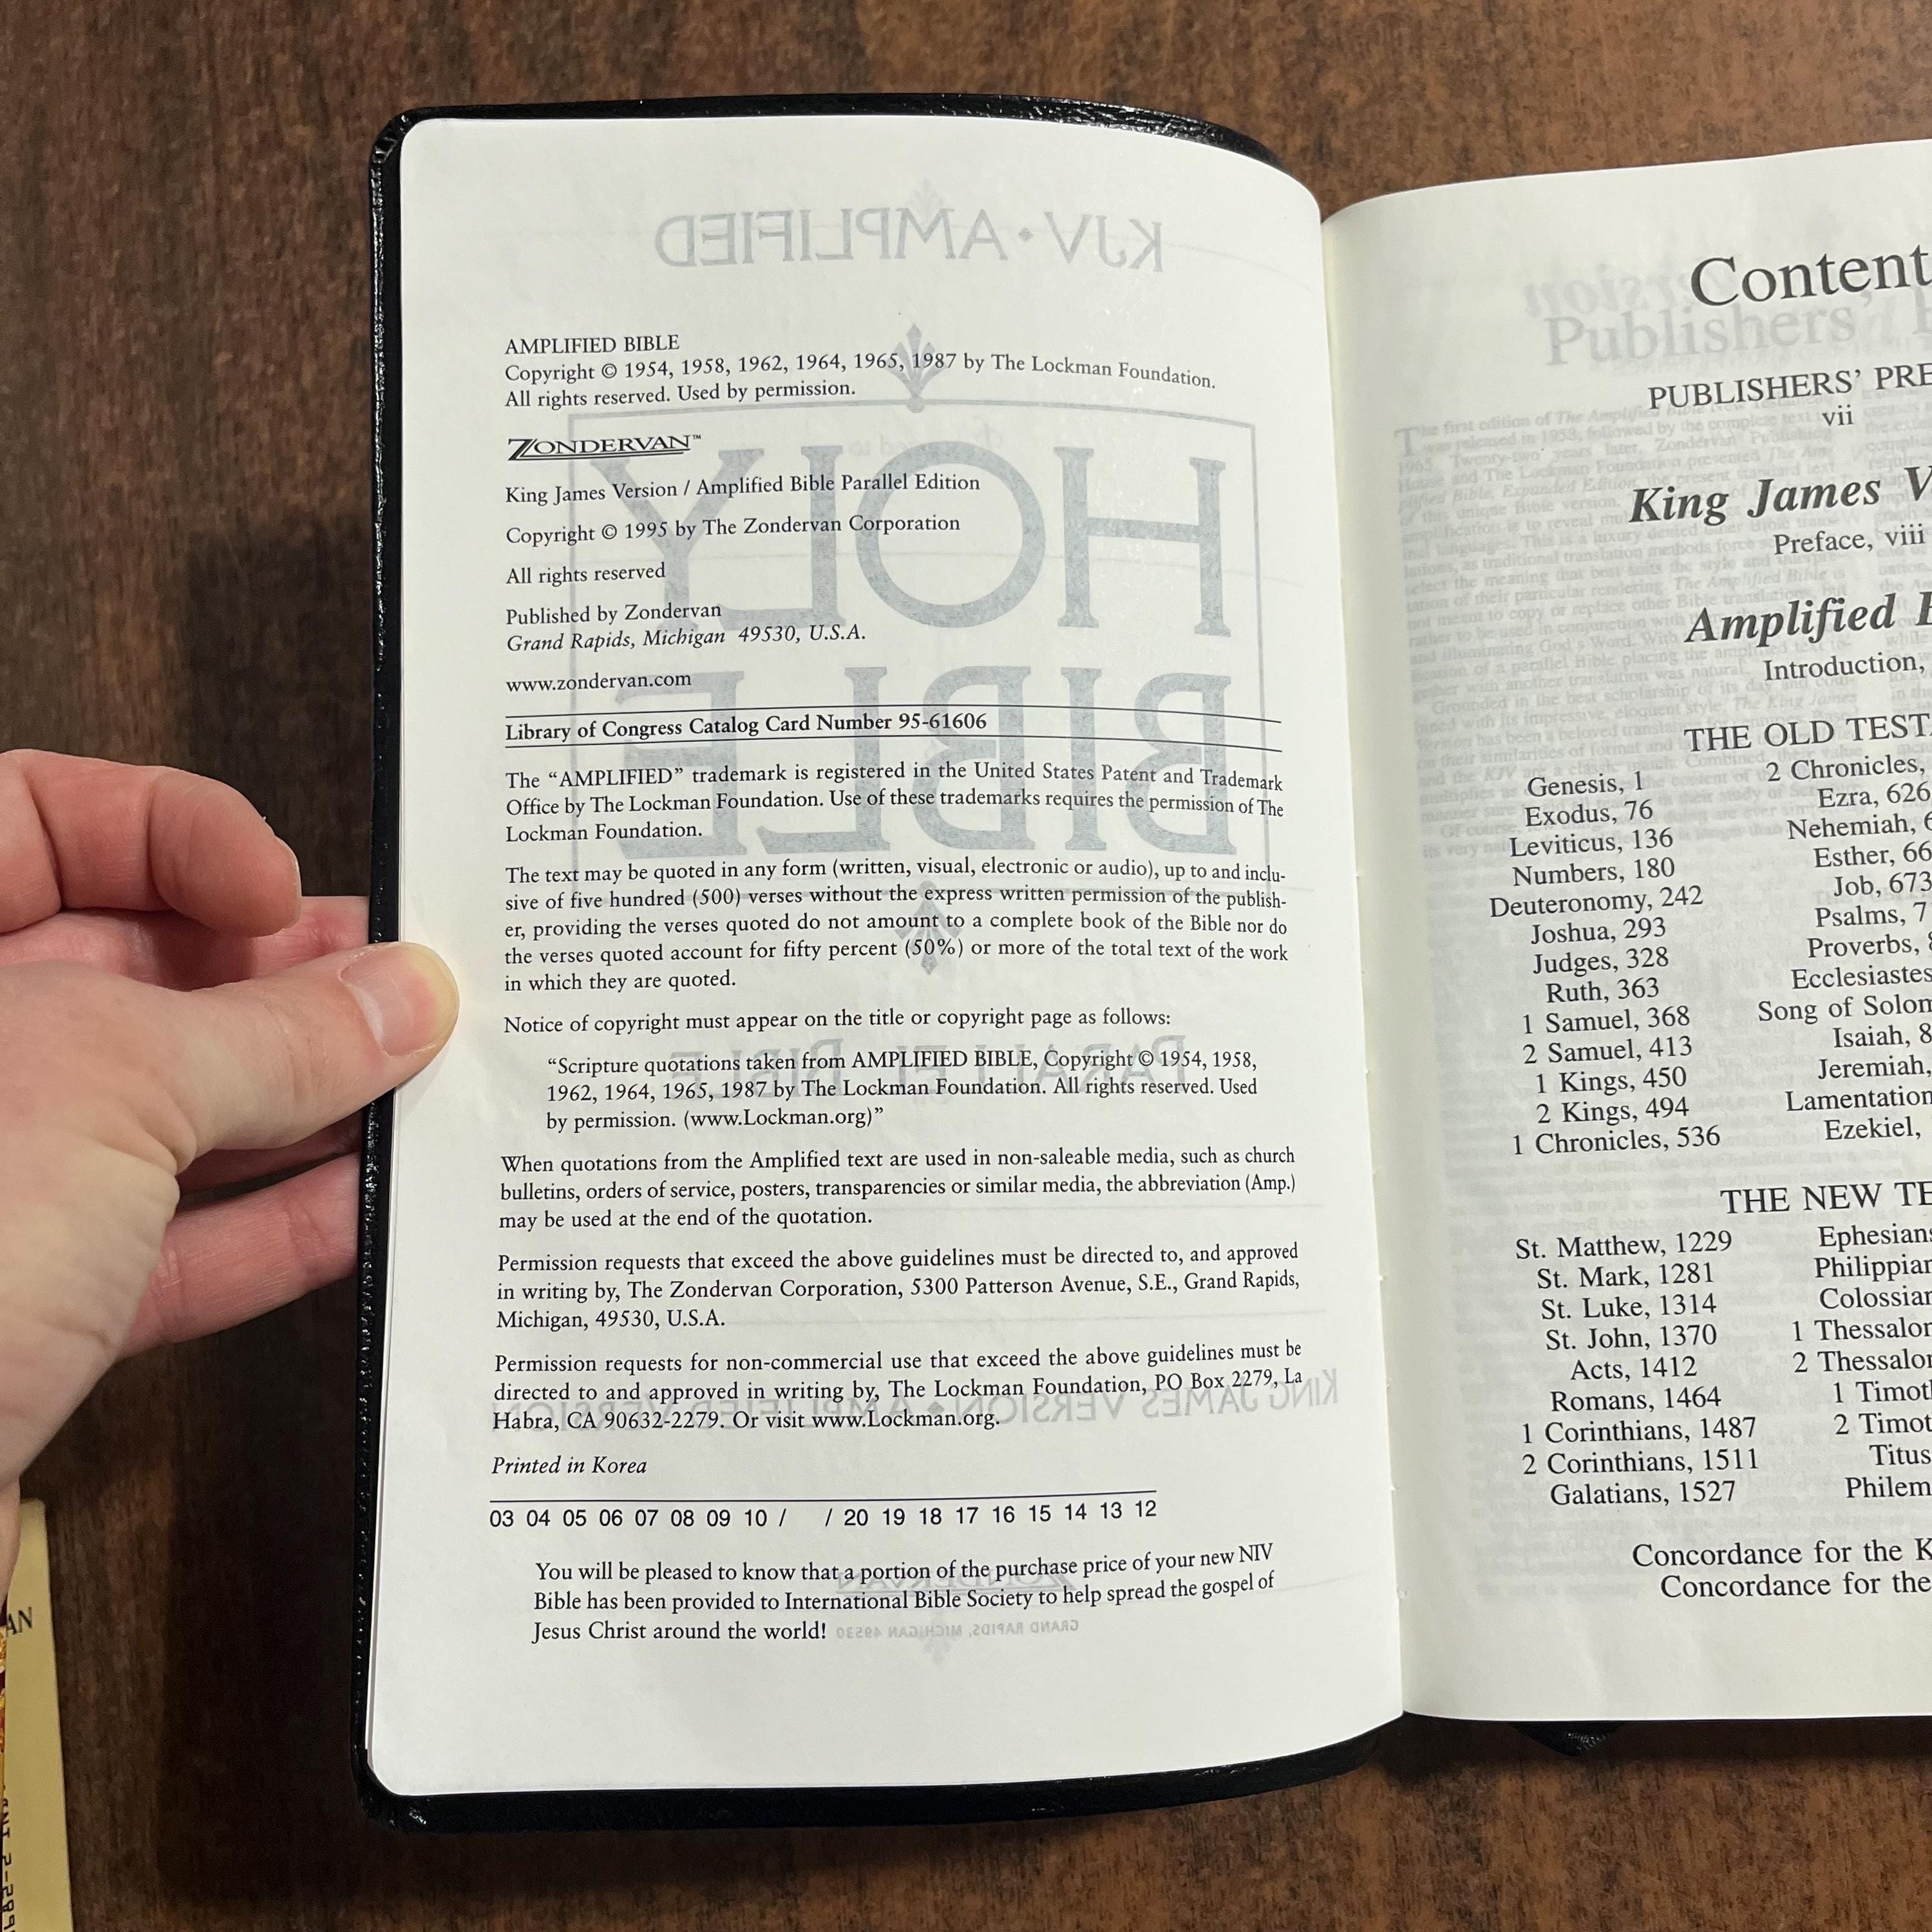 AMPLIFIED BIBLE
Copyright © 1954, 1958, 1962, 1964, 1965, 1987 by The Lockman Foundation.
All rights reserved. Used by permission.
ZONDERVAN™
King James Version / Amplified Bible Parallel Edition
Copyright © 1995 by The Zondervan Corporation
All rights reserved
Published by Zondervan
Grand Rapids, Michigan 49530, U.S.A.
www.zondervan.com
Library of Congress Catalog Card Number 95-61606
The “AMPLIFIED” trademark is registered in the United States Patent and Trademark
Office by The Lockman Foundation. Use of these trademarks requires the permission of The
Lockman Foundation.
The text may be quoted in any form (written, visual, electronic or audio), up to and inclu-
sive of five hundred (500) verses without the express written permission of the publish-
er, providing the verses quoted do not amount to a complete book of the Bible nor do
the verses quoted account for fifty percent (50%) or more of the total text of the work
in which they are quoted.
Notice of copyright must appear on the title or copyright page as follows:
“Scripture quotations taken from AMPLIFIED BIBLE, Copyright © 1954, 1958,
1962, 1964, 1965, 1987 by The Lockman Foundation. All rights reserved. Used
by permission. (www.Lockman.org)”
When quotations from the Amplified text are used in non-saleable media, such as church
bulletins, orders of service, posters, transparencies or similar media, the abbreviation (Amp.)
may be used at the end of the quotation.
Permission requests that exceed the above guidelines must be directed to, and approved
in writing by, The Zondervan Corporation, 5300 Patterson Avenue, S.E., Grand Rapids,
Michigan, 49530, U.S.A.
Permission requests for non-commercial use that exceed the above guidelines must be
directed to and approved in writing by, The Lockman Foundation, PO Box 2279, La
Habra, CA 90632-2279. Or visit www.Lockman.org.
Printed in Korea
03 04 05 06 07 08 09 10 / / 20 19 18 17 16 15 14 13 12
You will be pleased to know that a portion of the purchase price of your new NIV
Bible has been provided to International Bible Society to help spread the gospel of
Jesus Christ around the world!
Content
PUBLISHERS’ PRE
vii
King James V
Preface, viii
Amplified
Introduction,
THE OLD TEST
Genesis, 1
Exodus, 76
Leviticus, 136
Numbers, 180
Deuteronomy, 242
Joshua, 293
Judges, 328
Ruth, 363
1 Samuel, 368
2 Samuel, 413
1 Kings, 450
2 Kings, 494
1 Chronicles, 536
2 Chronicles,
Ezra, 626
Nehemiah, 6
Esther, 66
Job, 673
Psalms, 7
Proverbs, 8
Ecclesiastes
Song of Solom
Isaiah, 8
Jeremiah,
Lamentation
Ezekiel,
THE NEW TE
St. Matthew, 1229
St. Mark, 1281
St. Luke, 1314
St. John, 1370
Acts, 1412
Romans, 1464
1 Corinthians, 1487
2 Corinthians, 1511
Galatians, 1527
Ephesians
Philippian
Colossian
1 Thessalon
2 Thessalon
1 Timot
2 Timot
Titus
Philem
Concordance for the K
Concordance for the